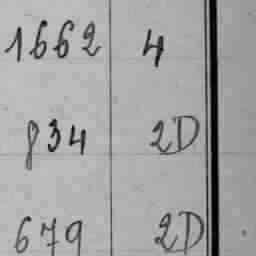 1662 4
834 2D
679 2D